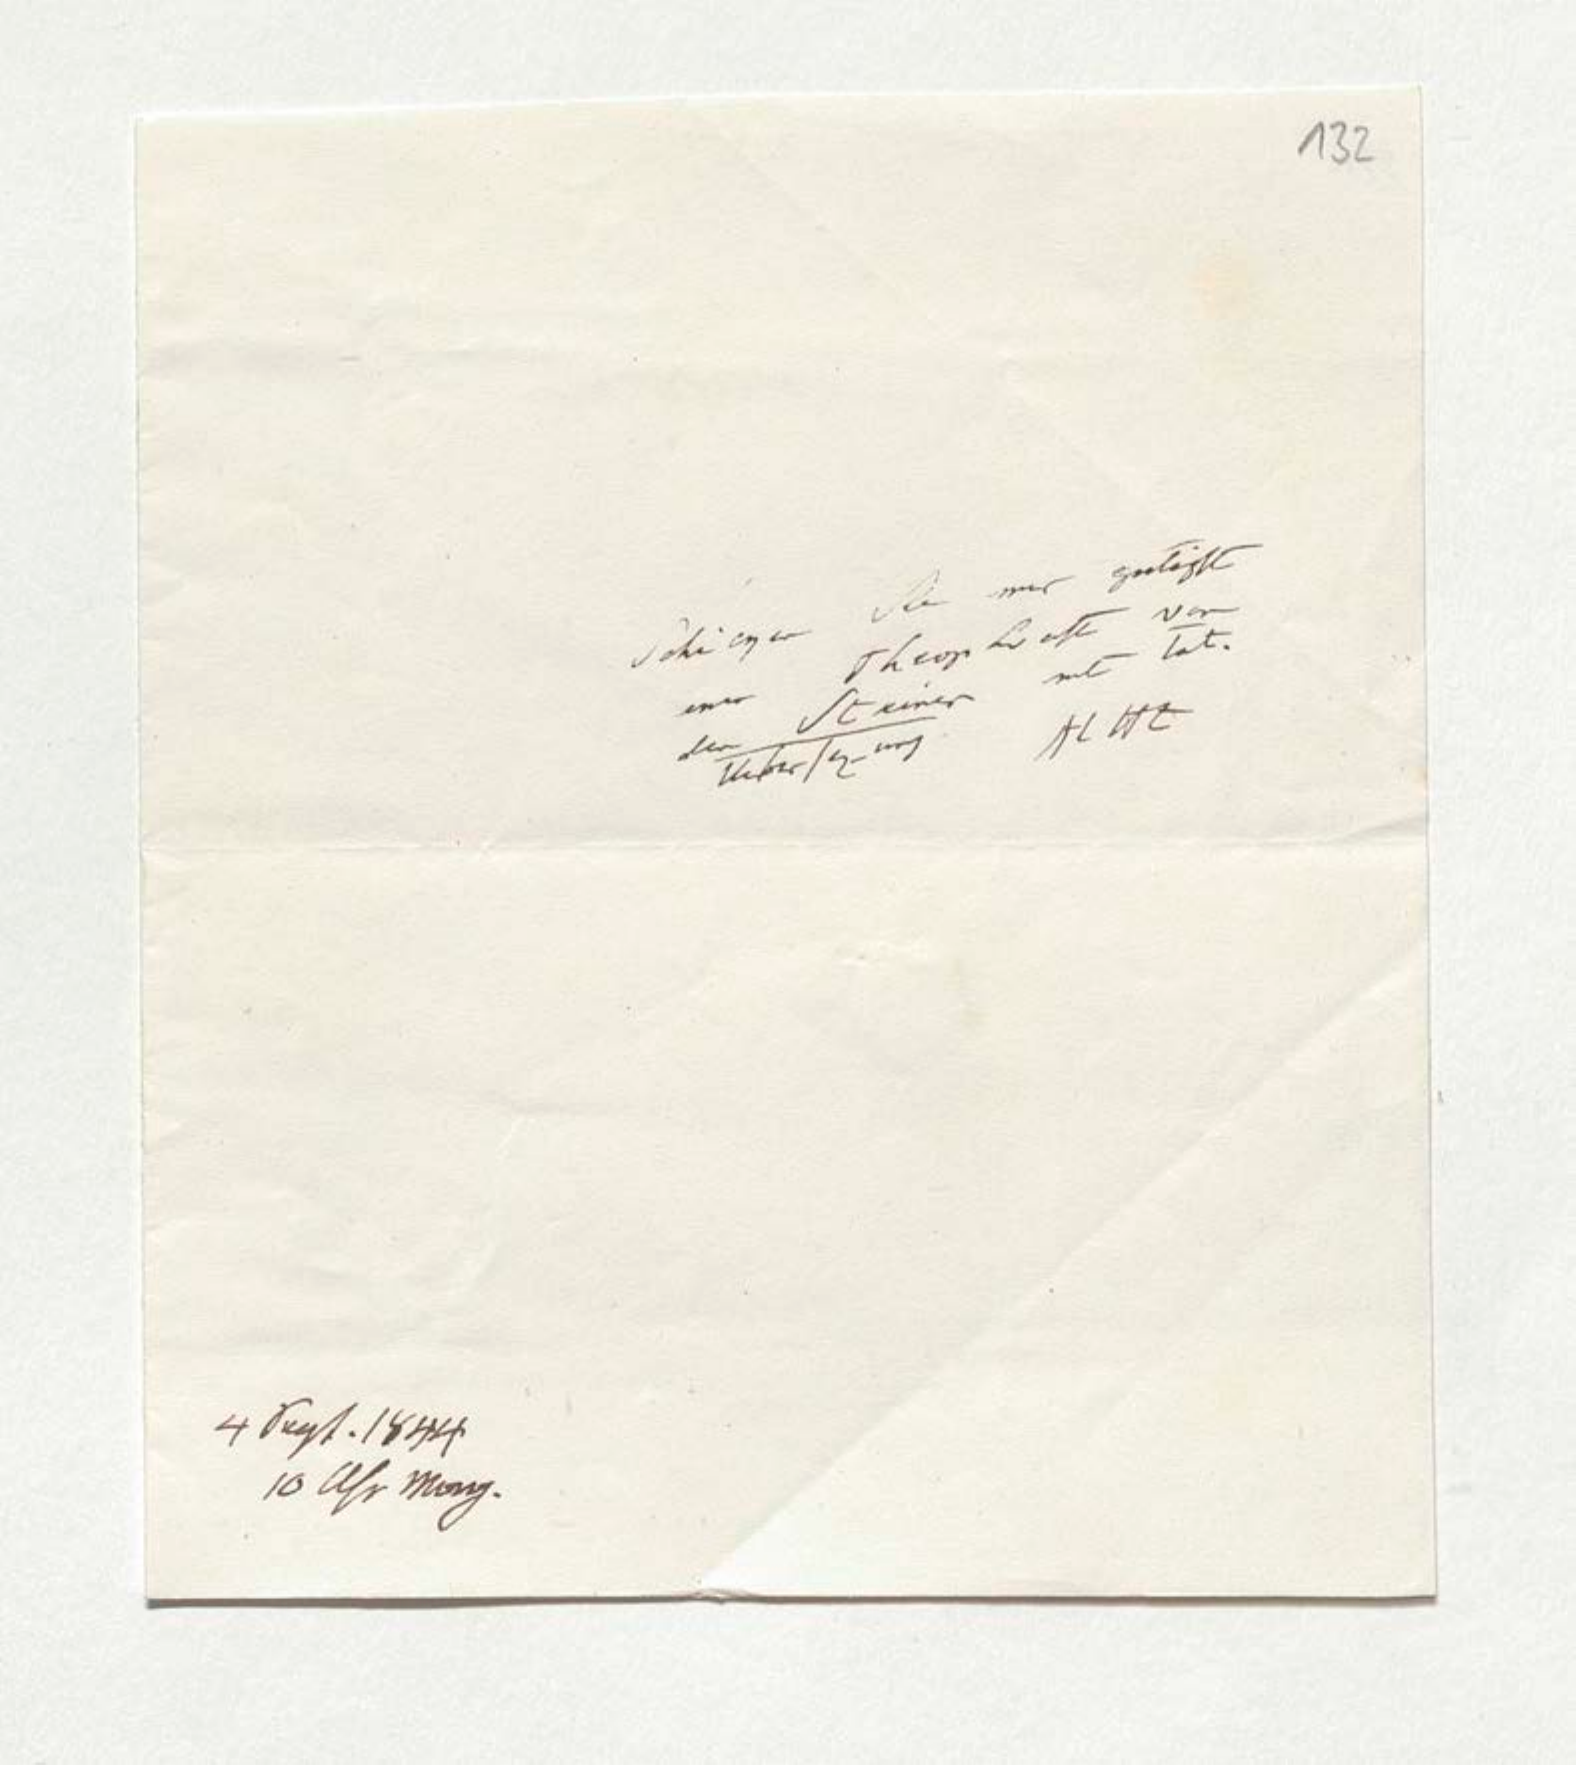 132
Schicken Sie mir gütigst
einen Theophrast von
den Steinen mit lat.
Uebersezung AlHt
4 Sept. 1844
10 Uhr Morg.